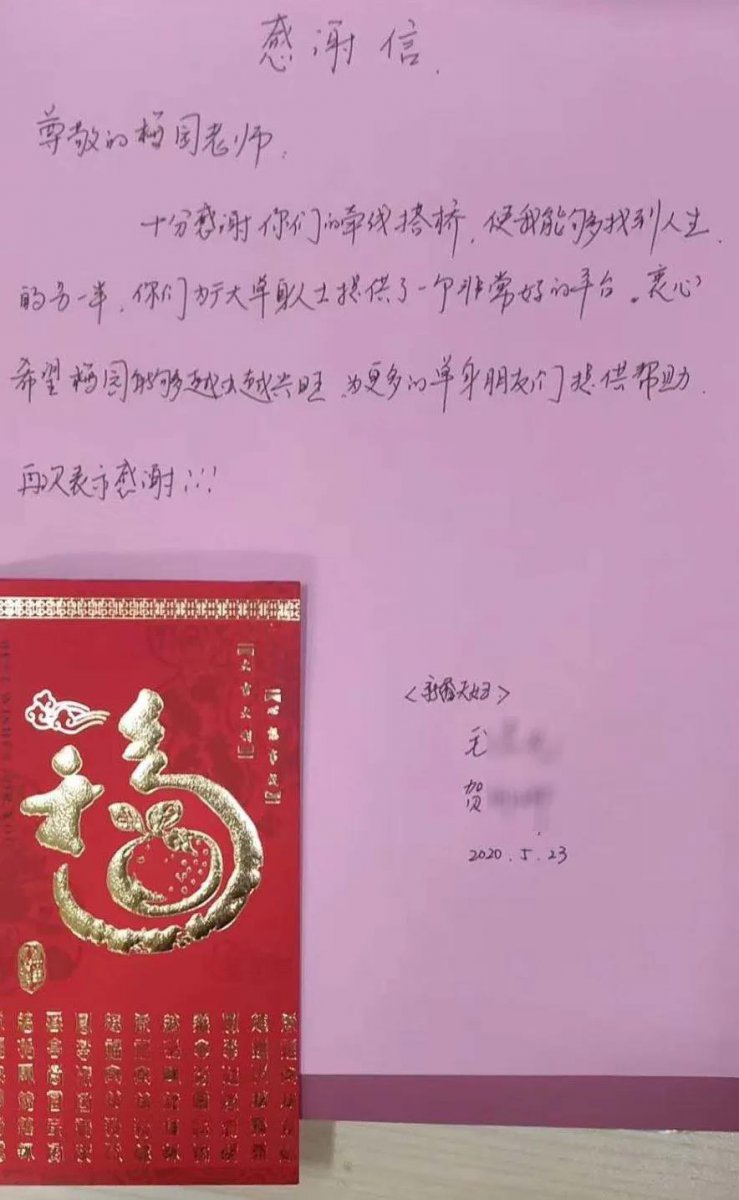 感谢信.
尊敬的梅园老师,
十分感谢你们的牵线搭桥,使我能够找到人生
的另一半,你们为广大单身人士提供了一个非常好的平台。衷心
希望梅园能够越来越兴旺,为更多的单身朋友们提供帮助.
再次表示感谢!!!
<新婚夫妇>
毛
贺
2020.5.23
福
BEST WISHES FOR YOU
大吉大利